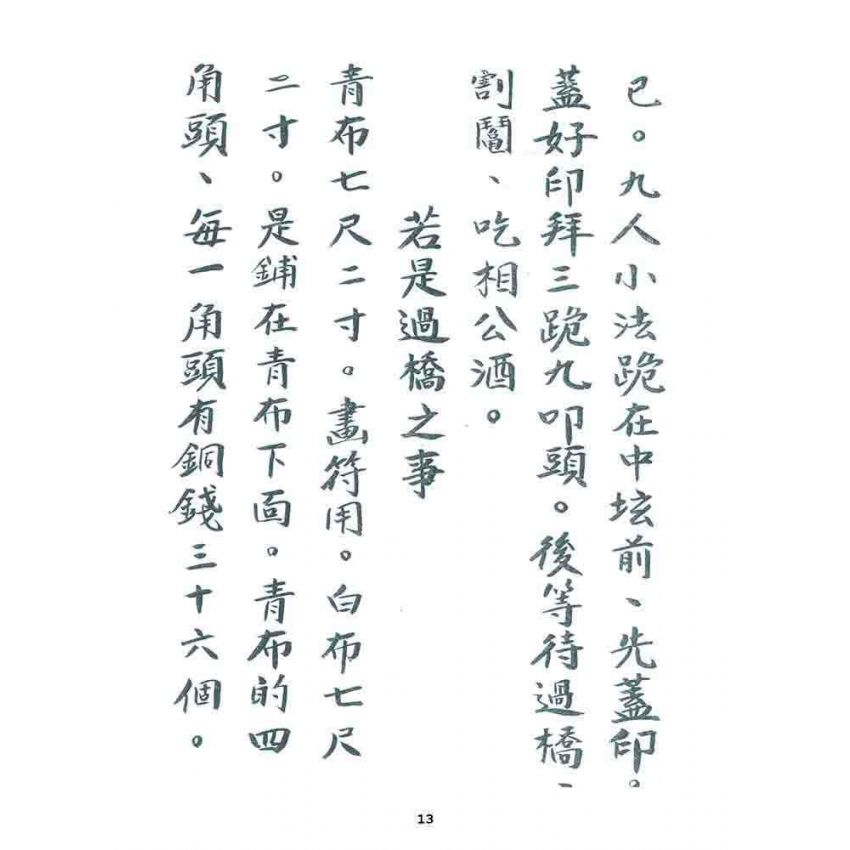 已。九人小法跪在中坛前、先蓋印。
蓋好印拜三跪九叩頭。後等待過橋、
割鬮、吃相公酒。
若是過橋之事
青布七尺二寸。畫符用。白布七尺
二寸。是鋪在青布下面。青布的四
角頭、每一角頭有銅錢三十六個。
13